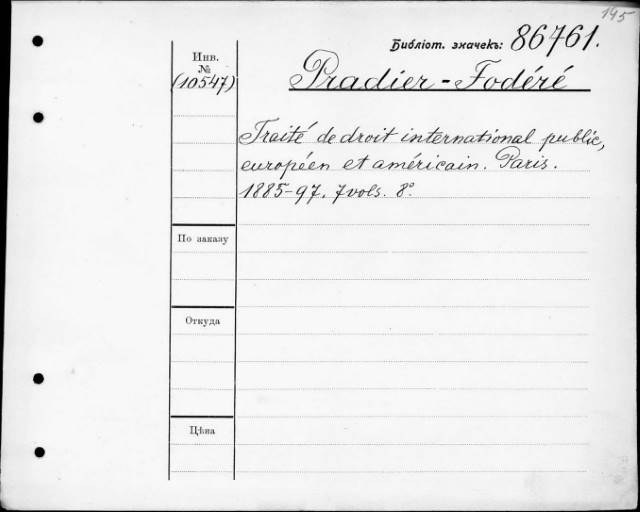 145
Библіот. значекъ: 86761.
Инв.
№
(10547)
Pradier-Fodéré
Traité de droit international public,
européen et américain. Paris.
1885-97. 7 vols. 8°.
По заказу
Откуда
Цѣна